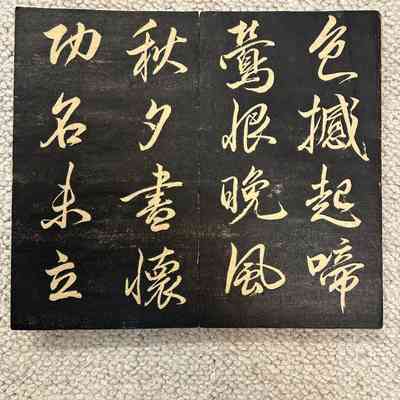 色撼起啼
莺恨晚风
秋夕書懷
功名未立